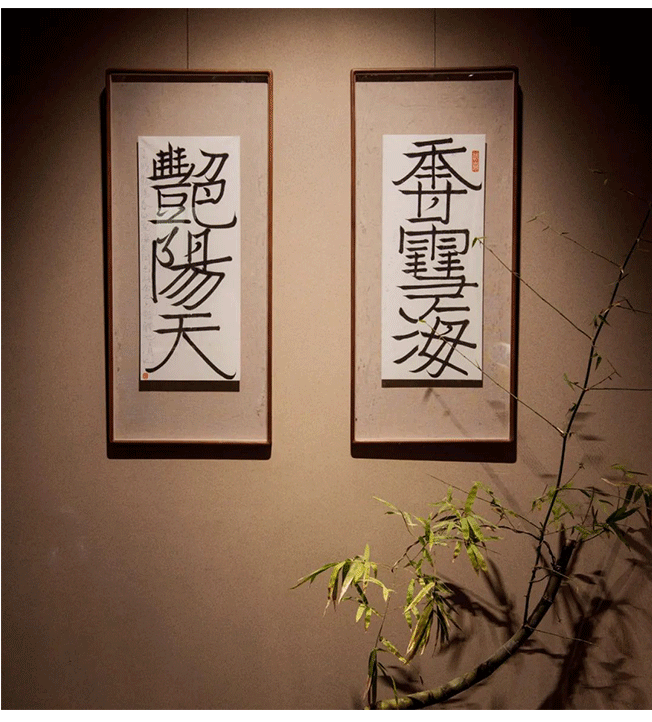 香䨮海
艷陽天